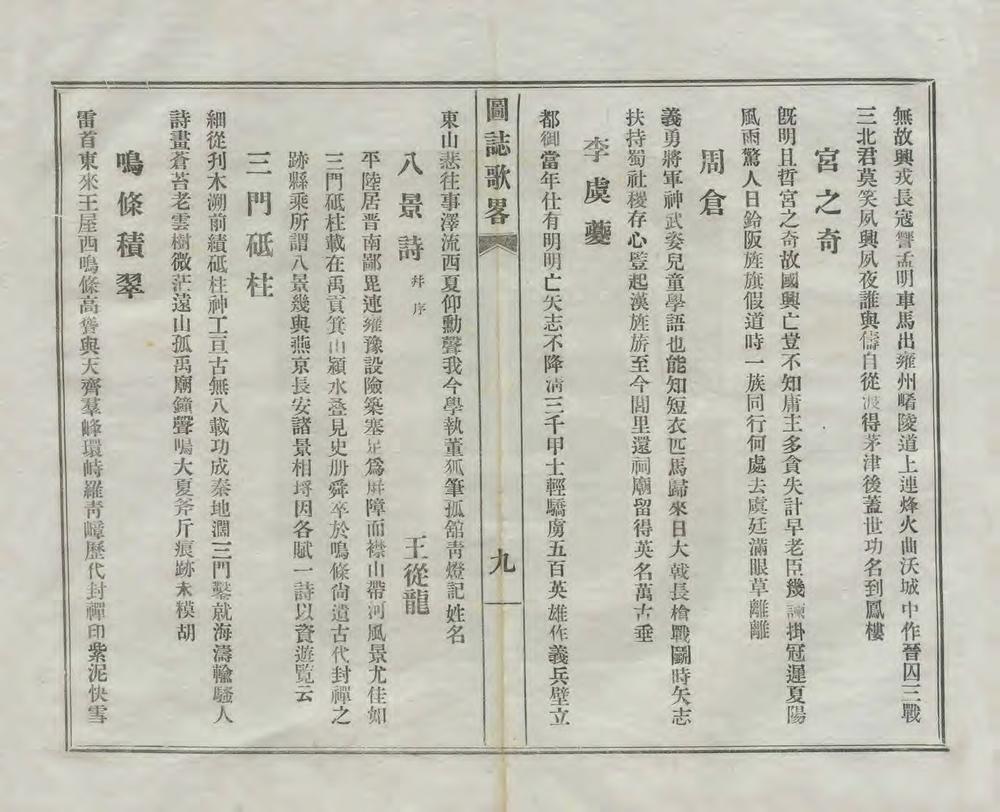 無故興戎長寇讐孟明車馬出雍州崤陵道上連烽火曲沃城中作晉囚三戰
三北君莫笑夙興夙夜誰與儔自從渡得茅津後蓋世功名到鳳樓
宮之奇
既明且哲宮之奇故國興亡豈不知庸主多貪失計早老臣幾諫掛冠遲夏陽
風雨驚人日鈴阪旌旗假道時一族同行何處去虞廷滿眼草離離
周倉
義勇將軍神武姿兒童學語也能知短衣匹馬歸來日大戟長槍戰鬭時矢志
扶持蜀社稷存心豎起漢旌旂至今閭里還祠廟留得英名萬古垂
李虞夔
都御當年仕有明明亡矢志不降淸三千甲士輕驕虜五百英雄作義兵壁立
圖誌歌畧
九
東山悲往事澤流西夏仰勳聲我今學執董狐筆孤舘靑燈記姓名
八景詩 幷序 王從龍
平陸居晉南鄙毘連雍豫設險築塞足爲屛障而襟山帶河風景尤佳如
三門砥柱載在禹貢箕山潁水叠見史册舜卒於鳴條尙遺古代封禪之
跡縣乘所謂八景幾與燕京長安諸景相埒因各賦一詩以資遊覧云
三門砥柱
細從刋木溯前績砥柱神工亘古無八載功成秦地濶三門鑿就海濤輸騷人
詩畫蒼苔老雲樹微茫遠山孤禹廟鐘聲鳴大夏斧斤痕跡未模胡
鳴條積翠
雷首東來王屋西鳴條高聳與天齊羣峰環峙羅靑嶂歷代封禪印紫泥快雪